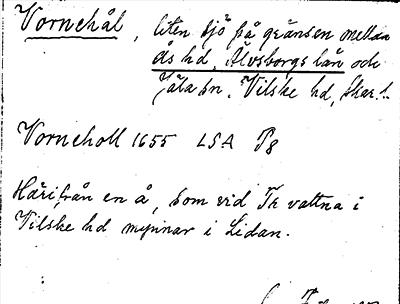 Vornehål, liten sjö på gränsen mellan
Ås hd, Älvsborgs län och
Jäla sn, Vilske hd, Skar.l.
Vorneholl 1655 LSA P8
Härifrån en å, som vid Tr vattna i
Vilske hd mynnar i Lidan.